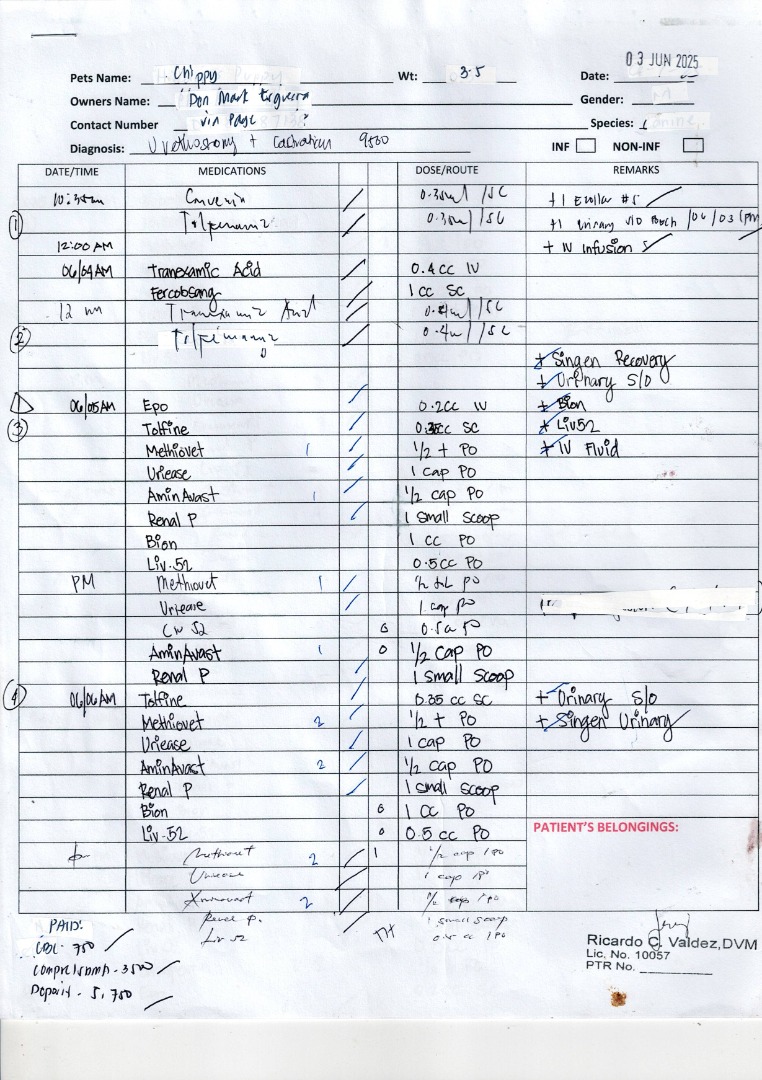 03 JUN 2025
Pets Name: Chippy Wt: 3.5 Date:
Owners Name: Don Mark Gender:
Contact Number via Page Species:
Diagnosis: Urethostomy + Castration 9500 INF NON-INF
DATE/TIME MEDICATIONS DOSE/ROUTE REMARKS
10:35am Convenia 0.35ml /SC + 1 Ecollar #5
1 Tolfenamic 0.35ml /SC +1 Urinary S/O Pouch /06/03 (PM
12:00 AM + IV Infusion
06/04 AM Tranexamic Acid 0.4cc IV
Fercobsang 1 cc SC
12 nn Tranexamic Acid /SC
2 Tolfenamic 0.4ml /SC
+ Singen Recovery
+ Urinary S/O
06/05 AM Epo 0.2cc IV + Bion
3 Tolfine 0.35cc SC + Liv52
Methiovet 1 1/2 + PO + IV Fluid
Uriease 1 cap PO
AminAvast 1 1/2 cap PO
Renal P 1 Small Scoop
Bion 1 cc PO
Liv.52 0.5cc PO
PM Methiovet 1 1/2 PO
Uriease 1 cap PO
Liv 52 0 0.5cc PO
AminAvast 1 0 1/2 cap PO
Renal P 1 Small Scoop
4 06/06 AM Tolfine 0.35 cc SC + Urinary S/O
Methiovet 2 1/2 + PO + Singen Urinary
Uriease 1 cap PO
AminAvast 2 1/2 cap PO
Renal P 1 small scoop
Bion 0 1 CC PO
Liv-52 0 0.5 cc PO
PATIENT'S BELONGINGS:
Methiovet 2 1 1/2 cap /PO
Uriease 1 cap PO
Aminavast 2 1/2 cap /PO
Renal P. 1 small scoop
Liv 52 0.5 cc /PO
PAID:
CBC- 750
Comprehsnv- 3500
Deposit - 5,750
Ricardo C. Valdez, DVM
Lic. No. 10057
PTR No.